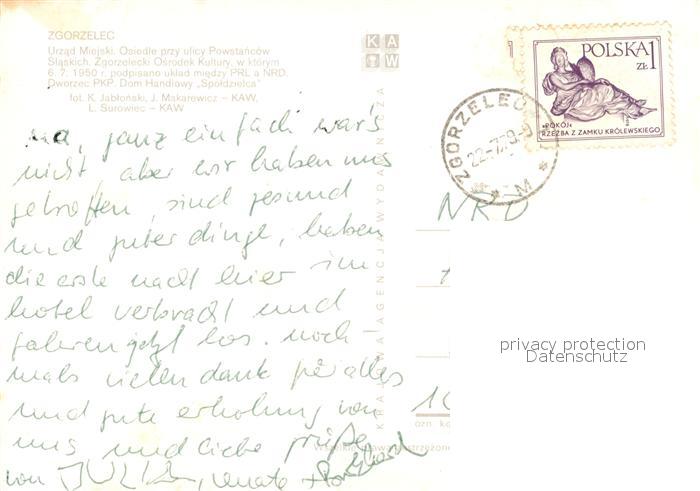 ZGORZELEC
Urząd Miejski. Osiedle przy ulicy Powstańców
Śląskich. Zgorzelecki Ośrodek Kultury, w którym
6. 7. 1950 r. podpisano układ między PRL a NRD.
Dworzec PKP. Dom Handlowy „Spółdzielca"
fot. K. Jabłoński, J. Makarewicz – KAW,
L. Surowiec – KAW
KAW
na, ganz einfach war's
nicht, aber wir haben uns
getroffen, sind gesund
und guter dinge, haben
die erste nacht hier im
hotel verbracht und
fahren jetzt los. noch
mals vielen dank für alles
und gute erholung von
uns und liebe grüße
von JULIA, renate +
KRAJOWA AGENCJA WYDAWNICZA
POLSKA 1
ZŁ
„POKÓJ"
RZEŹBA Z ZAMKU KRÓLEWSKIEGO
ZGORZELEC
22-7.79
M
NRD
privacy protection
Datenschutz
10